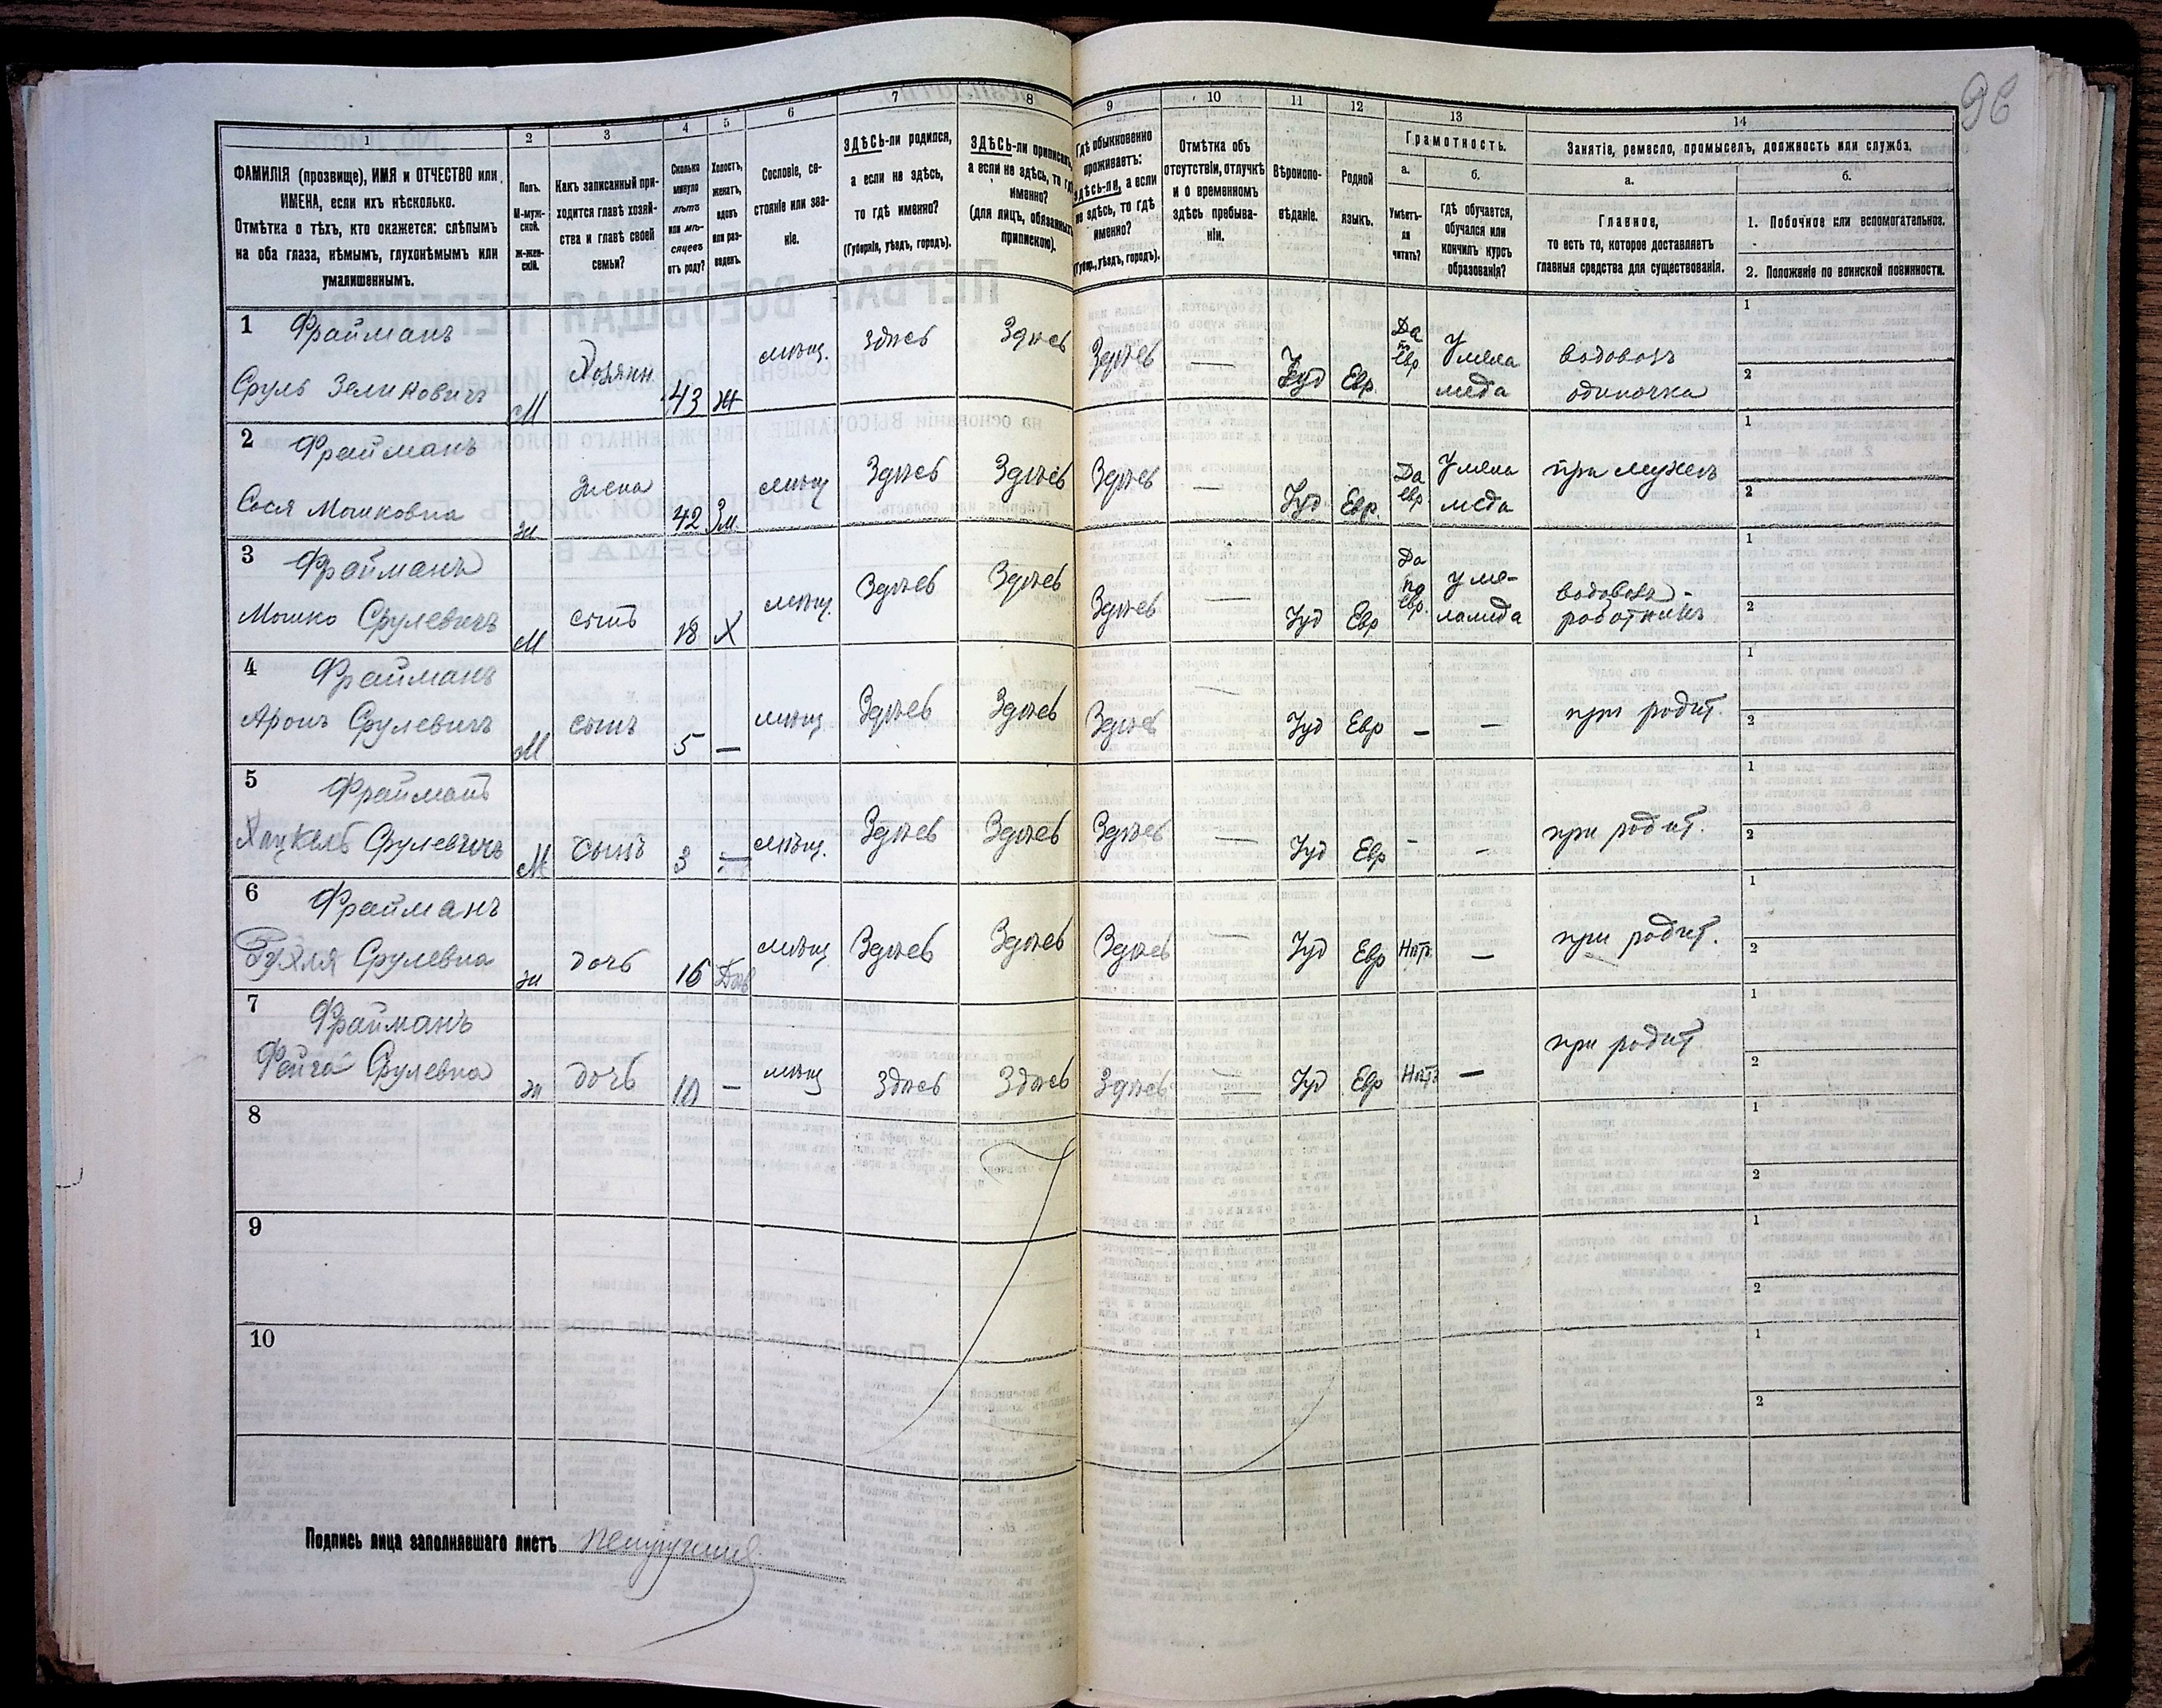 96
1
2
3
4
5
6
7
8
9
10
11
12
13
14
ФАМИЛІЯ (прозвище), ИМЯ и ОТЧЕСТВО или
ИМЕНА, если ихъ нѣсколько.
Отмѣтка о тѣхъ, кто окажется: слѣпымъ
на оба глаза, нѣмымъ, глухонѣмымъ или
умалишеннымъ.
Полъ.
М-муж-
ской.
Ж-жен-
скій.
Какъ записанный при-
ходится главѣ хозяй-
ства и главѣ своей
семьи?
Сколько
минуло
лѣтъ
или мѣ-
сяцевъ
отъ роду?
Холостъ,
женатъ,
вдовъ
или раз-
веденъ.
Сословіе, со-
стояніе или зва-
ніе.
ЗДѢСЬ-ли родился,
а если не здѣсь,
то гдѣ именно?
(Губернія, уѣздъ, городъ).
ЗДѢСЬ-ли приписанъ,
а если не здѣсь, то гдѣ
именно?
(для лицъ, обязанныхъ
припискою).
Гдѣ обыкновенно
проживаетъ:
здѣсь-ли, а если
не здѣсь, то гдѣ
именно?
(Губер., уѣздъ, городъ).
Отмѣтка объ
отсутствіи, отлучкѣ
и о временномъ
здѣсь пребыва-
ніи.
Вѣроиспо-
вѣданіе.
Родной
языкъ.
Грамотность.
а.
Умѣетъ-
ли
читать?
б.
гдѣ обучается,
обучался или
кончилъ курсъ
образованія?
Занятіе, ремесло, промыселъ, должность или служба.
а.
Главное,
то есть то, которое доставляетъ
главныя средства для существованія.
б.
1. Побочное или вспомогательное.
2. Положеніе по воинской повинности.
1 Файманъ
Сруль Зеликовичъ М Хозяинъ 43 Ж мѣщ. Здѣсь Здѣсь Здѣсь — Іуд Евр. Да по евр У мела меда водовозъ одиночка 1 2
2 Файманъ
Сося Мошковна ж Жена 42 Зм мѣщ Здѣсь Здѣсь Здѣсь — Іуд Евр. Да евр У мела меда при мужѣ 1 2
3 Файманъ
Мошко Срулевичъ М сынъ 18 Х мѣщ. Здѣсь Здѣсь Здѣсь — Іуд Евр Да по евр. у ме-ламеда водовозъ - работникъ 1 2
4 Файманъ
Аронъ Срулевичъ М сынъ 5 — мѣщ Здѣсь Здѣсь Здѣсь — Іуд Евр — — при родит. 1 2
5 Файманъ
Хацкель Срулевичъ М сынъ 3 — мѣщ. Здѣсь Здѣсь Здѣсь — Іуд Евр - — при родит. 1 2
6 Файманъ
Рухля Срулевна ж дочь 16 Дѣв мѣщ Здѣсь Здѣсь Здѣсь — Іуд Евр Нѣтъ — при родит. 1 2
7 Файманъ
Фейга Срулевна ж дочь 10 — мѣщ Здѣсь Здѣсь Здѣсь — Іуд Евр Нѣтъ — при родит 1 2
8 1 2
9 1 2
10 1 2
Подпись лица заполнявшаго листъ